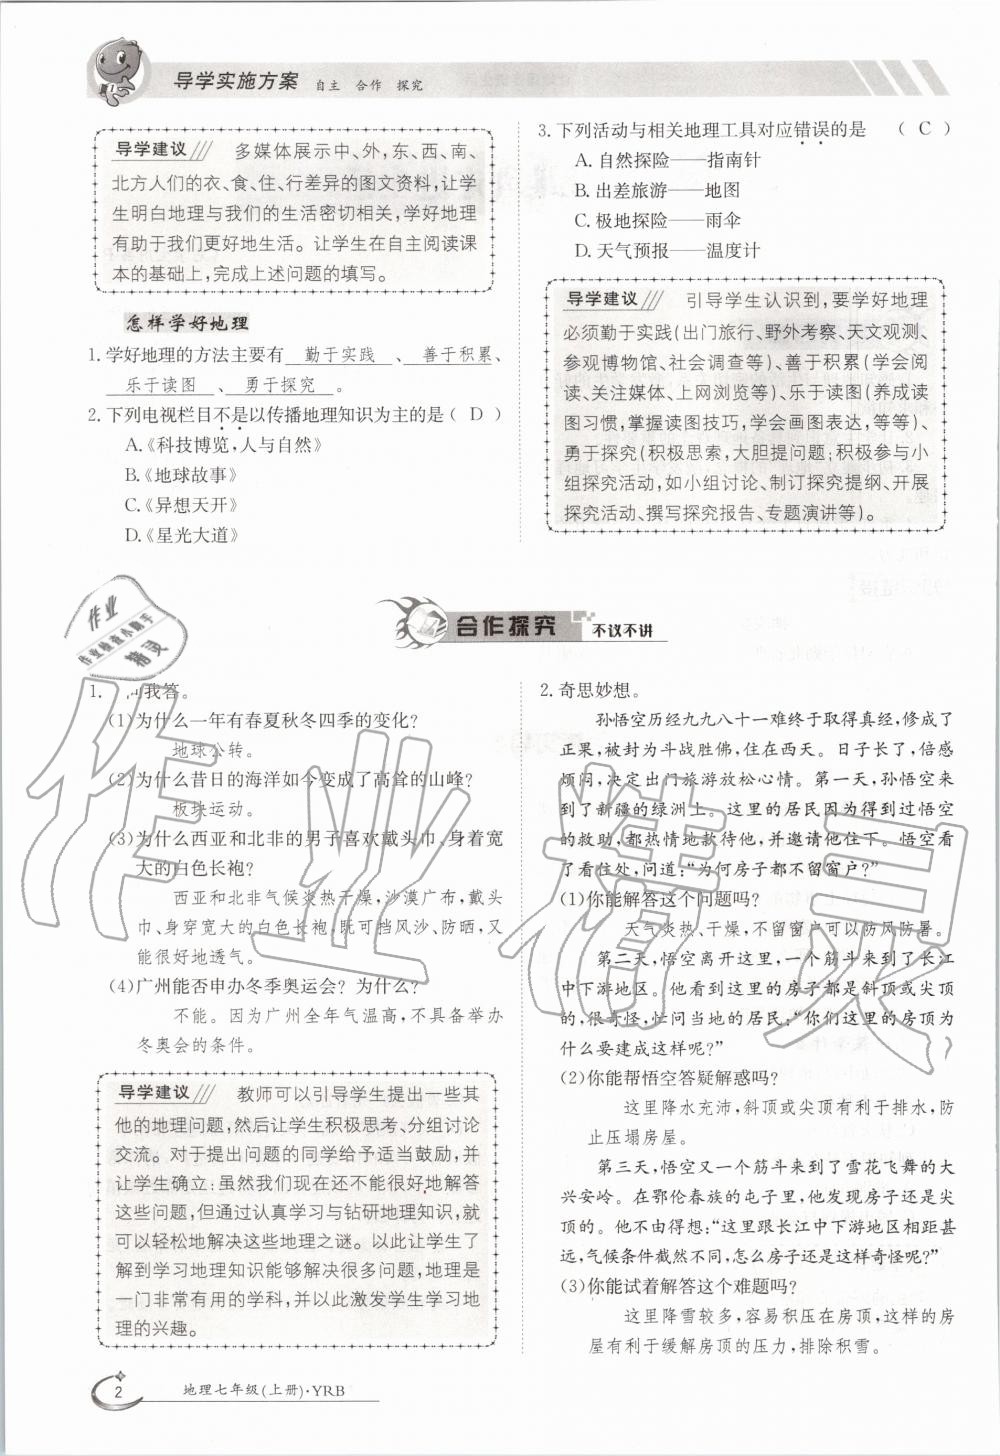 导学实施方案 自主 合作 探究
导学建议 多媒体展示中、外,东、西、南、
北方人们的衣、食、住、行差异的图文资料,让学
生明白地理与我们的生活密切相关,学好地理
有助于我们更好地生活。让学生在自主阅读课
本的基础上,完成上述问题的填写。
怎样学好地理
1.学好地理的方法主要有 勤于实践 、 善于积累 、
乐于读图 、 勇于探究 。
2.下列电视栏目不是以传播地理知识为主的是( D )
A.《科技博览,人与自然》
B.《地球故事》
C.《异想天开》
D.《星光大道》
3.下列活动与相关地理工具对应错误的是 ( C )
A.自然探险——指南针
B.出差旅游——地图
C.极地探险——雨伞
D.天气预报——温度计
导学建议 引导学生认识到,要学好地理
必须勤于实践(出门旅行、野外考察、天文观测、
参观博物馆、社会调查等)、善于积累(学会阅
读、关注媒体、上网浏览等)、乐于读图(养成读
图习惯,掌握读图技巧,学会画图表达,等等)、
勇于探究(积极思索,大胆提问题;积极参与小
组探究活动,如小组讨论、制订探究提纲、开展
探究活动、撰写探究报告、专题演讲等)。
合作探究 不议不讲
1. 我答。
(1)为什么一年有春夏秋冬四季的变化?
地球公转。
(2)为什么昔日的海洋如今变成了高耸的山峰?
板块运动。
(3)为什么西亚和北非的男子喜欢戴头巾、身着宽
大的白色长袍?
西亚和北非气候炎热干燥,沙漠广布,戴头
巾、身穿宽大的白色长袍,既可挡风沙、防晒,又
能很好地透气。
(4)广州能否申办冬季奥运会? 为什么?
不能。因为广州全年气温高,不具备举办
冬奥会的条件。
导学建议 教师可以引导学生提出一些其
他的地理问题,然后让学生积极思考、分组讨论
交流。对于提出问题的同学给予适当鼓励,并
让学生确立:虽然我们现在还不能很好地解答
这些问题,但通过认真学习与钻研地理知识,就
可以轻松地解决这些地理之谜。以此让学生了
解到学习地理知识能够解决很多问题,地理是
一门非常有用的学科,并以此激发学生学习地
理的兴趣。
2.奇思妙想。
孙悟空历经九九八十一难终于取得真经,修成了
正果,被封为斗战胜佛,住在西天。日子长了,倍感
烦闷,决定出门旅游放松心情。第一天,孙悟空来
到了新疆的绿洲上。这里的居民因为得到过悟空
的救助,都热情地款待他,并邀请他住下。悟空看
了看住处,问道:“为何房子都不留窗户?”
(1)你能解答这个问题吗?
天气炎热、干燥,不留窗户可以防风防暑。
第二天,悟空离开这里,一个筋斗来到了长江
中下游地区。他看到这里的房子都是斜顶或尖顶
的,很奇怪,忙问当地的居民:“你们这里的房顶为
什么要建成这样呢?”
(2)你能帮悟空答疑解惑吗?
这里降水充沛,斜顶或尖顶有利于排水,防
止压塌房屋。
第三天,悟空又一个筋斗来到了雪花飞舞的大
兴安岭。在鄂伦春族的屯子里,他发现房子还是尖
顶的。他不由得想:“这里跟长江中下游地区相距甚
远,气候条件截然不同,怎么房子还是这样奇怪呢?”
(3)你能试着解答这个难题吗?
这里降雪较多,容易积压在房顶,这样的房
屋有利于缓解房顶的压力,排除积雪。
2 地理七年级(上册)·YRB
作业
作业检查小助手
精灵
作业精灵